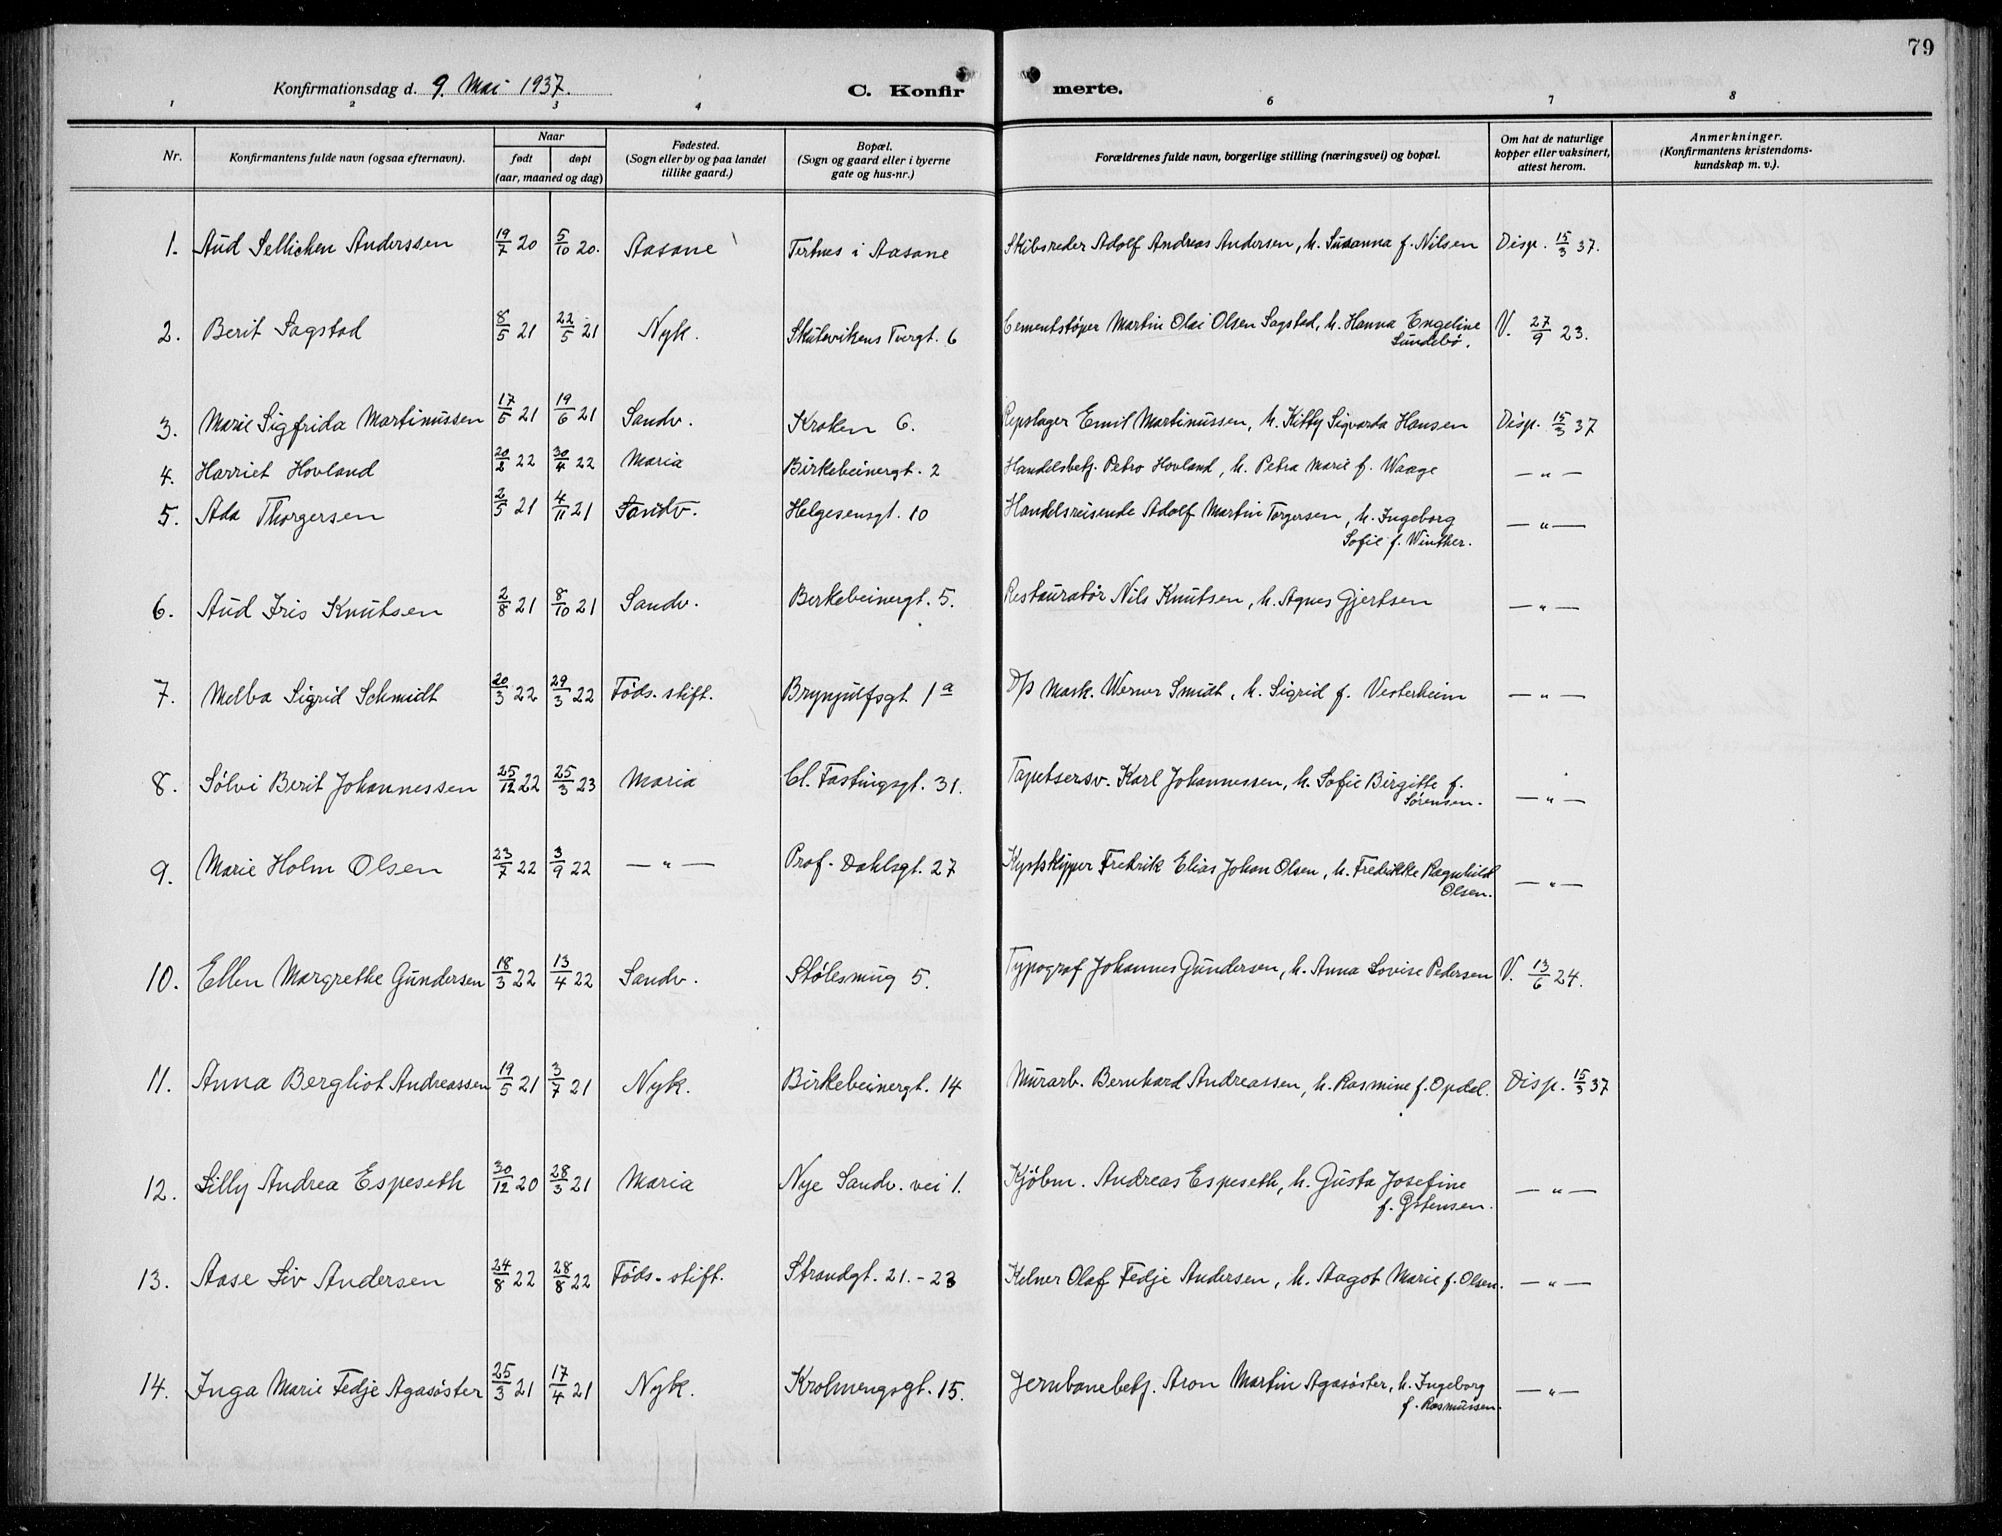 79
Konfirmationsdag d. 9. Mai 1937.
C. Konfirmerte.
1 2 3 4 6 7 8
Nr.
Konfirmantens fulde navn (ogsaa efternavn).
Naar
født døpt
(aar, maaned og dag)
Fødested.
(Sogn eller by og paa landet
tillike gaard.)
Bopæl.
(Sogn og gaard eller i byerne
gate og hus-nr.)
Forældrenes fulde navn, borgerlige stilling (næringsvei) og bopæl.
Om hat de naturlige
kopper eller vaksinert,
attest herom.
Anmerkninger.
(Konfirmantens kristendoms-
kundskap m. v.).
1. Aud Sellicken Anderssen 19/7 20 5/10 20. Aasane Tertnes i Aasane Skibsreder Adolf Andreas Andersen, h. Susanna f. Nilsen Disp. 15/3 37.
2. Berit Sagstad 8/5 21 22/5 21 Nyk. Skutevikens Tvergt. 6 Cementstøper Martin Olai Olsen Sagstad, h. Hanna Engeline V. 27/9 23.
Sundebø.
3. Marie Sigfrida Martinussen 17/5 21 19/6 21 Sandv. Kroken 6. Repslager Emil Martinussen, h. Kitty Sigvarda Hansen Disp. 15/3 37
4. Harriet Hovland 20/2 22 30/4 22 Maria Birkebeinergt. 2 Handelsbetj. Petro Hovland, h. Petra Marie f. Waage — „ —
5. Ada Thorgersen 2/5 21 4/11 21 Sandv. Helgesensgt. 10 Handelsreisende Adolf Martin Torgersen, h. Ingeborg — „ —
Sofie f. Winther.
6. Aud Iris Knutsen 2/8 21 8/10 21 Sandv. Birkebeinergt. 5. Restauratør Nils Knutsen, h. Agnes Gjertsen — „ —
7. Melba Sigrid Schmidt 20/3 22 29/3 22 Føds. stift. Brynjulfsgt. 1a D/s Mask. Werner Smidt, h. Sigrid f. Vesterheim — „ —
8. Sølvi Berit Johannessen 25/12 22 25/3 23 Maria Cl. Fastingsgt. 31. Tapetsersv. Karl Johannessen, h. Sofie Birgitte f. — „ —
Sørensen.
9. Marie Holm Olsen 23/7 22 3/9 22 — „ — Prof. Dahlsgt. 27 Kystskipper Fredrik Elias Johan Olsen, h. Fredrikke Ragnhild — „ —
Olsen.
10. Ellen Margrethe Gundersen 18/3 22 13/4 22 Sandv. Stølesmug 5. Typograf Johannes Gundersen, h. Anna Lovise Pedersen V. 13/6 24.
11. Anna Bergliot Andreassen 19/5 21 3/7 21 Nyk. Birkebeinergt. 14 Murarb. Bernhard Andreassen, h. Rasmine f. Opdal. Disp. 15/3 37
12. Lilly Andrea Espeseth 30/12 20 28/3 21 Maria Nye Sandv. vei 1. Kjøbm. Andreas Espeseth, h. Gusta Josefine — „ —
13. Aase Liv Andersen 24/8 22 28/8 22 Føds. stift. Strandgt. 21.-23 Kelner Olaf Fedje Andersen, h. Aagot Marie f. Olsen. — „ —
14. Inga Marie Fedje Agasøster 25/3 21 17/4 21 Nyk. Krohnengsgt. 15. Jernbanebetj. Aron Martin Agasøster, h. Ingeborg — „ —
f. Rasmussen.